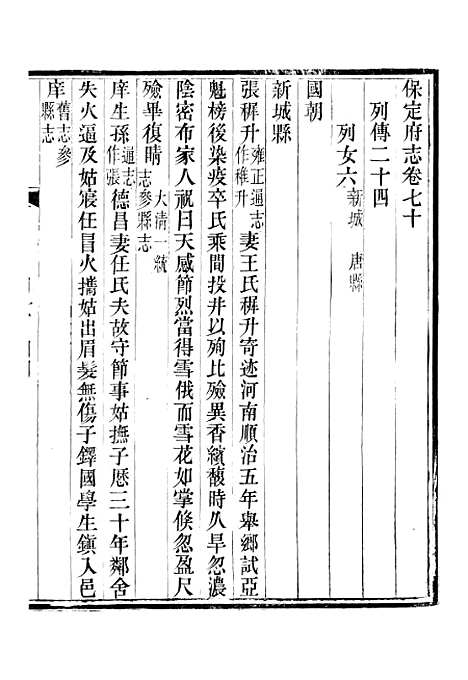 保定府志卷七十
列傳二十四
列女六 新城 唐縣
國朝
新城縣
張穉升 雍正通志作稚升 妻王氏穉升寄迹河南順治五年舉鄉試亞
魁榜後染疫卒氏乘間投井以殉比殮異香繽馥時久旱忽濃
陰密布家人祝曰天感節烈當得雪俄而雪花如掌倏忽盈尺
殮畢復晴 大清一統志參縣志
庠生孫 通志作張 德昌妻任氏夫故守節事姑撫子歷三十年鄰舍
失火逼及姑寢任冒火攜姑出眉髮無傷子鐸國學生鎮入邑
庠 舊志參縣志